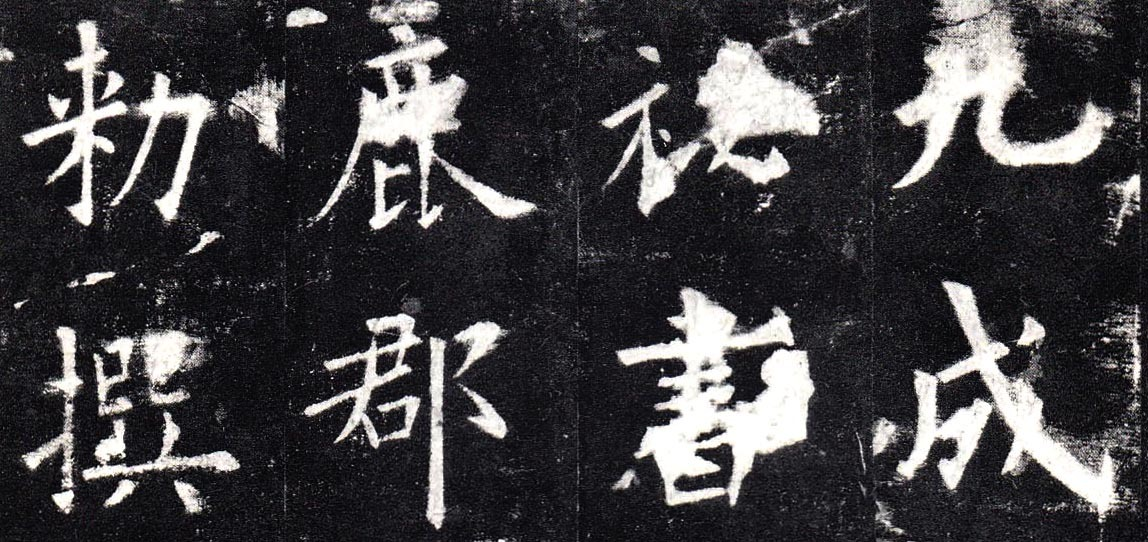 九成
祕書
鹿郡
勑撰